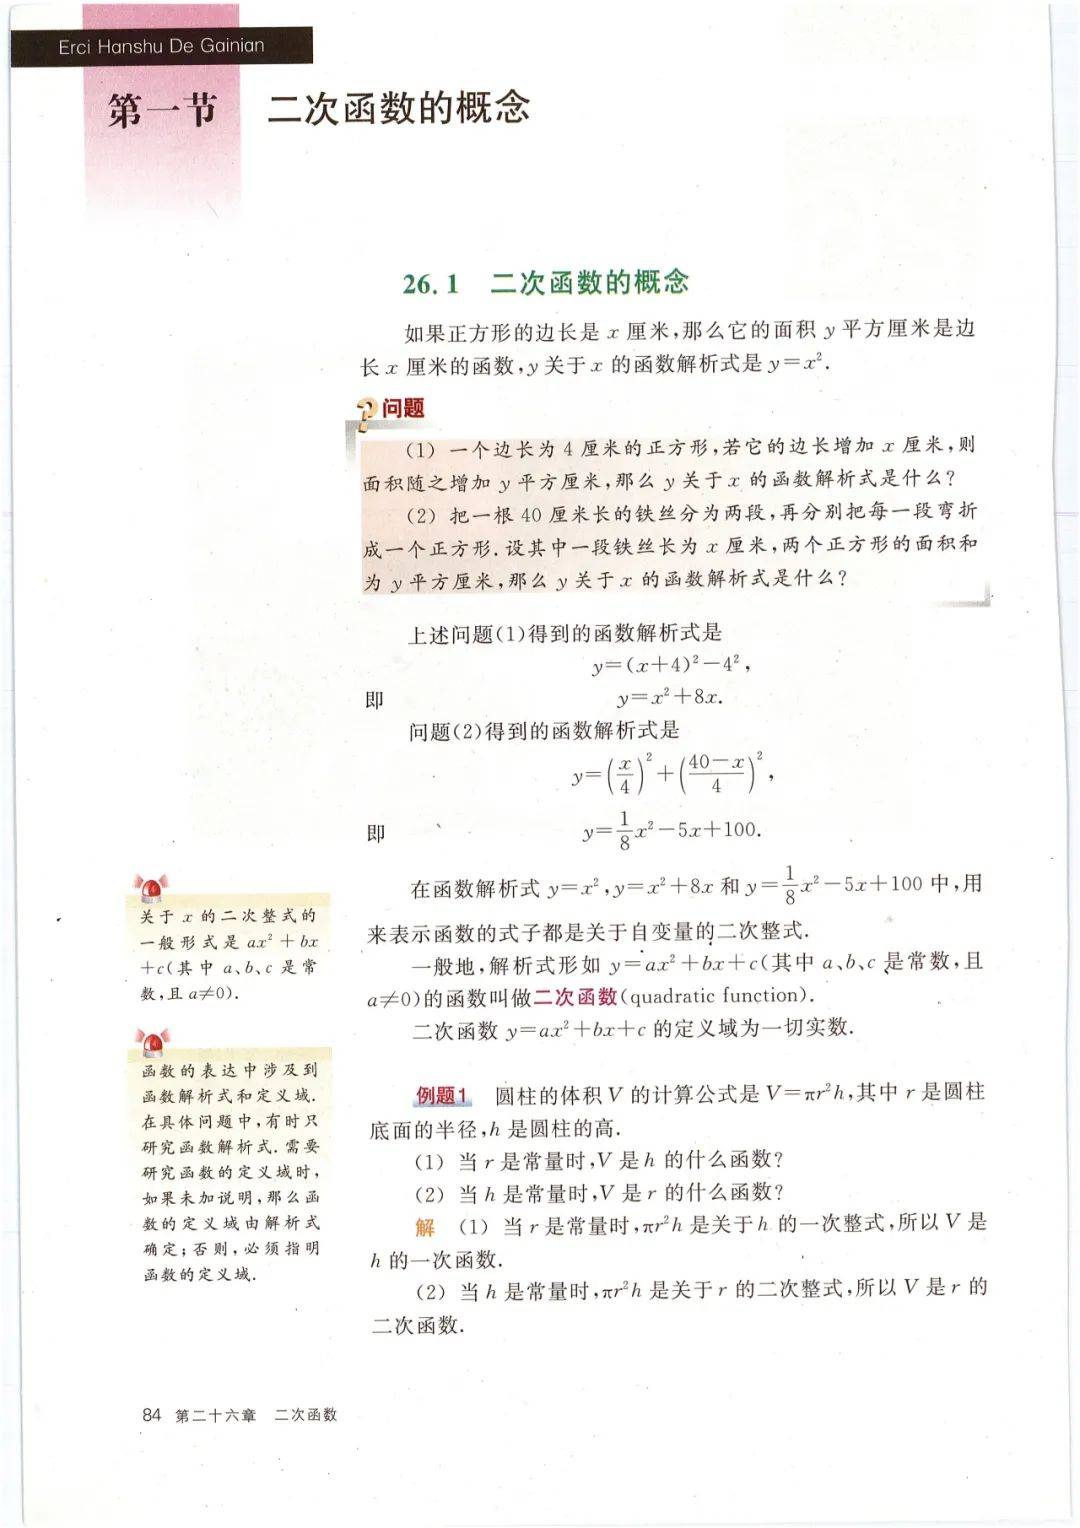 Erci Hanshu De Gainian
第一节 二次函数的概念
26.1 二次函数的概念
如果正方形的边长是 x 厘米,那么它的面积 y 平方厘米是边
长 x 厘米的函数,y 关于 x 的函数解析式是 y=x².
问题
(1) 一个边长为 4 厘米的正方形,若它的边长增加 x 厘米,则
面积随之增加 y 平方厘米,那么 y 关于 x 的函数解析式是什么?
(2) 把一根 40 厘米长的铁丝分为两段,再分别把每一段弯折
成一个正方形.设其中一段铁丝长为 x 厘米,两个正方形的面积和
为 y 平方厘米,那么 y 关于 x 的函数解析式是什么?
上述问题(1)得到的函数解析式是
y=(x+4)²-4²,
即 y=x²+8x.
问题(2)得到的函数解析式是
y=(x/4)²+((40-x)/4)²,
即 y=1/8x²-5x+100.
在函数解析式 y=x²,y=x²+8x 和 y=1/8x²-5x+100 中,用
来表示函数的式子都是关于自变量的二次整式.
一般地,解析式形如 y=ax²+bx+c(其中 a、b、c 是常数,且
a≠0)的函数叫做二次函数(quadratic function).
二次函数 y=ax²+bx+c 的定义域为一切实数.
关于 x 的二次整式的
一般形式是 ax²+bx
+c(其中 a、b、c 是常
数,且 a≠0).
函数的表达中涉及到
函数解析式和定义域.
在具体问题中,有时只
研究函数解析式.需要
研究函数的定义域时,
如果未加说明,那么函
数的定义域由解析式
确定;否则,必须指明
函数的定义域.
例题1 圆柱的体积 V 的计算公式是 V=πr²h,其中 r 是圆柱
底面的半径,h 是圆柱的高.
(1) 当 r 是常量时,V 是 h 的什么函数?
(2) 当 h 是常量时,V 是 r 的什么函数?
解 (1) 当 r 是常量时,πr²h 是关于 h 的一次整式,所以 V 是
h 的一次函数.
(2) 当 h 是常量时,πr²h 是关于 r 的二次整式,所以 V 是 r 的
二次函数.
84 第二十六章 二次函数